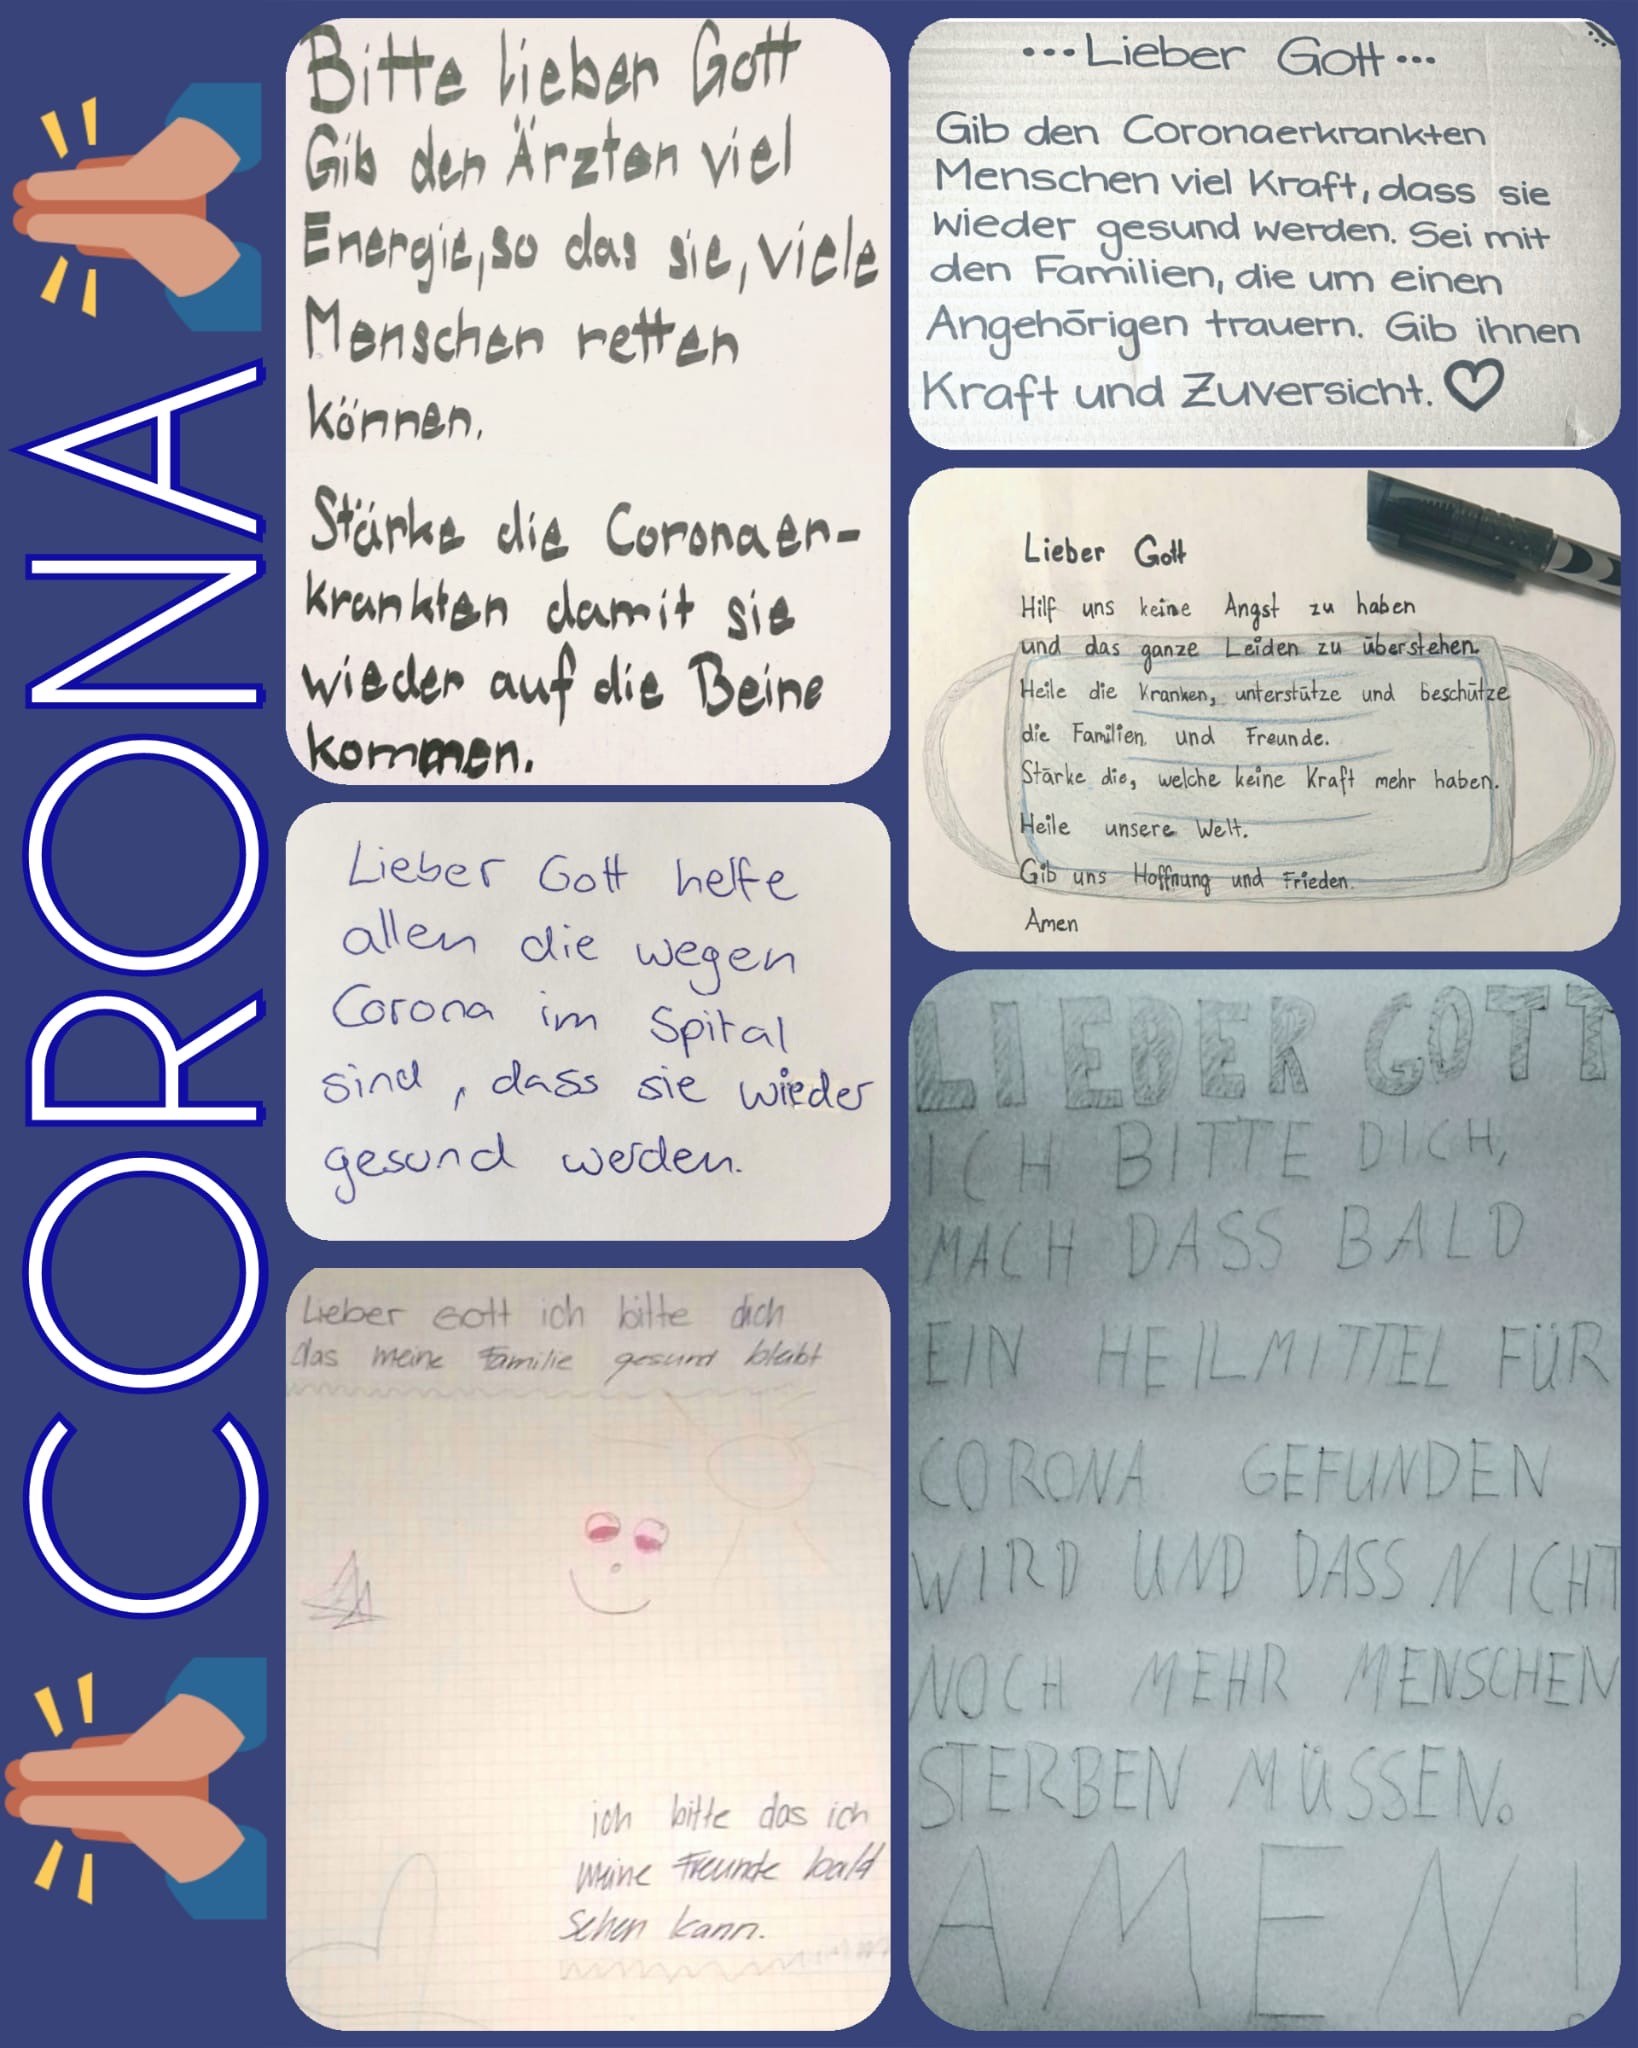 CORONA
Bitte lieber Gott
Gib den Ärzten viel
Energie, so das sie, viele
Menschen retten
können.
Stärke die Coronaer-
krankten damit sie
wieder auf die Beine
kommen.
Lieber Gott helfe
allen die wegen
Corona im Spital
sind, dass sie wieder
gesund werden.
Lieber Gott ich bitte dich
das meine Familie gesund bleibt
ich bitte das ich
meine Freunde bald
sehen kann.
•••Lieber Gott•••
Gib den Coronaerkrankten
Menschen viel Kraft, dass sie
wieder gesund werden. Sei mit
den Familien, die um einen
Angehörigen trauern. Gib ihnen
Kraft und Zuversicht. ♡
Lieber Gott
Hilf uns keine Angst zu haben
und das ganze Leiden zu überstehen.
Heile die Kranken, unterstütze und beschütze
die Familien und Freunde.
Stärke die, welche keine Kraft mehr haben.
Heile unsere Welt.
Gib uns Hoffnung und Frieden.
Amen
LIEBER GOTT
ICH BITTE DICH,
MACH DASS BALD
EIN HEILMITTEL FÜR
CORONA GEFUNDEN
WIRD UND DASS NICHT
NOCH MEHR MENSCHEN
STERBEN MÜSSEN.
AMEN!